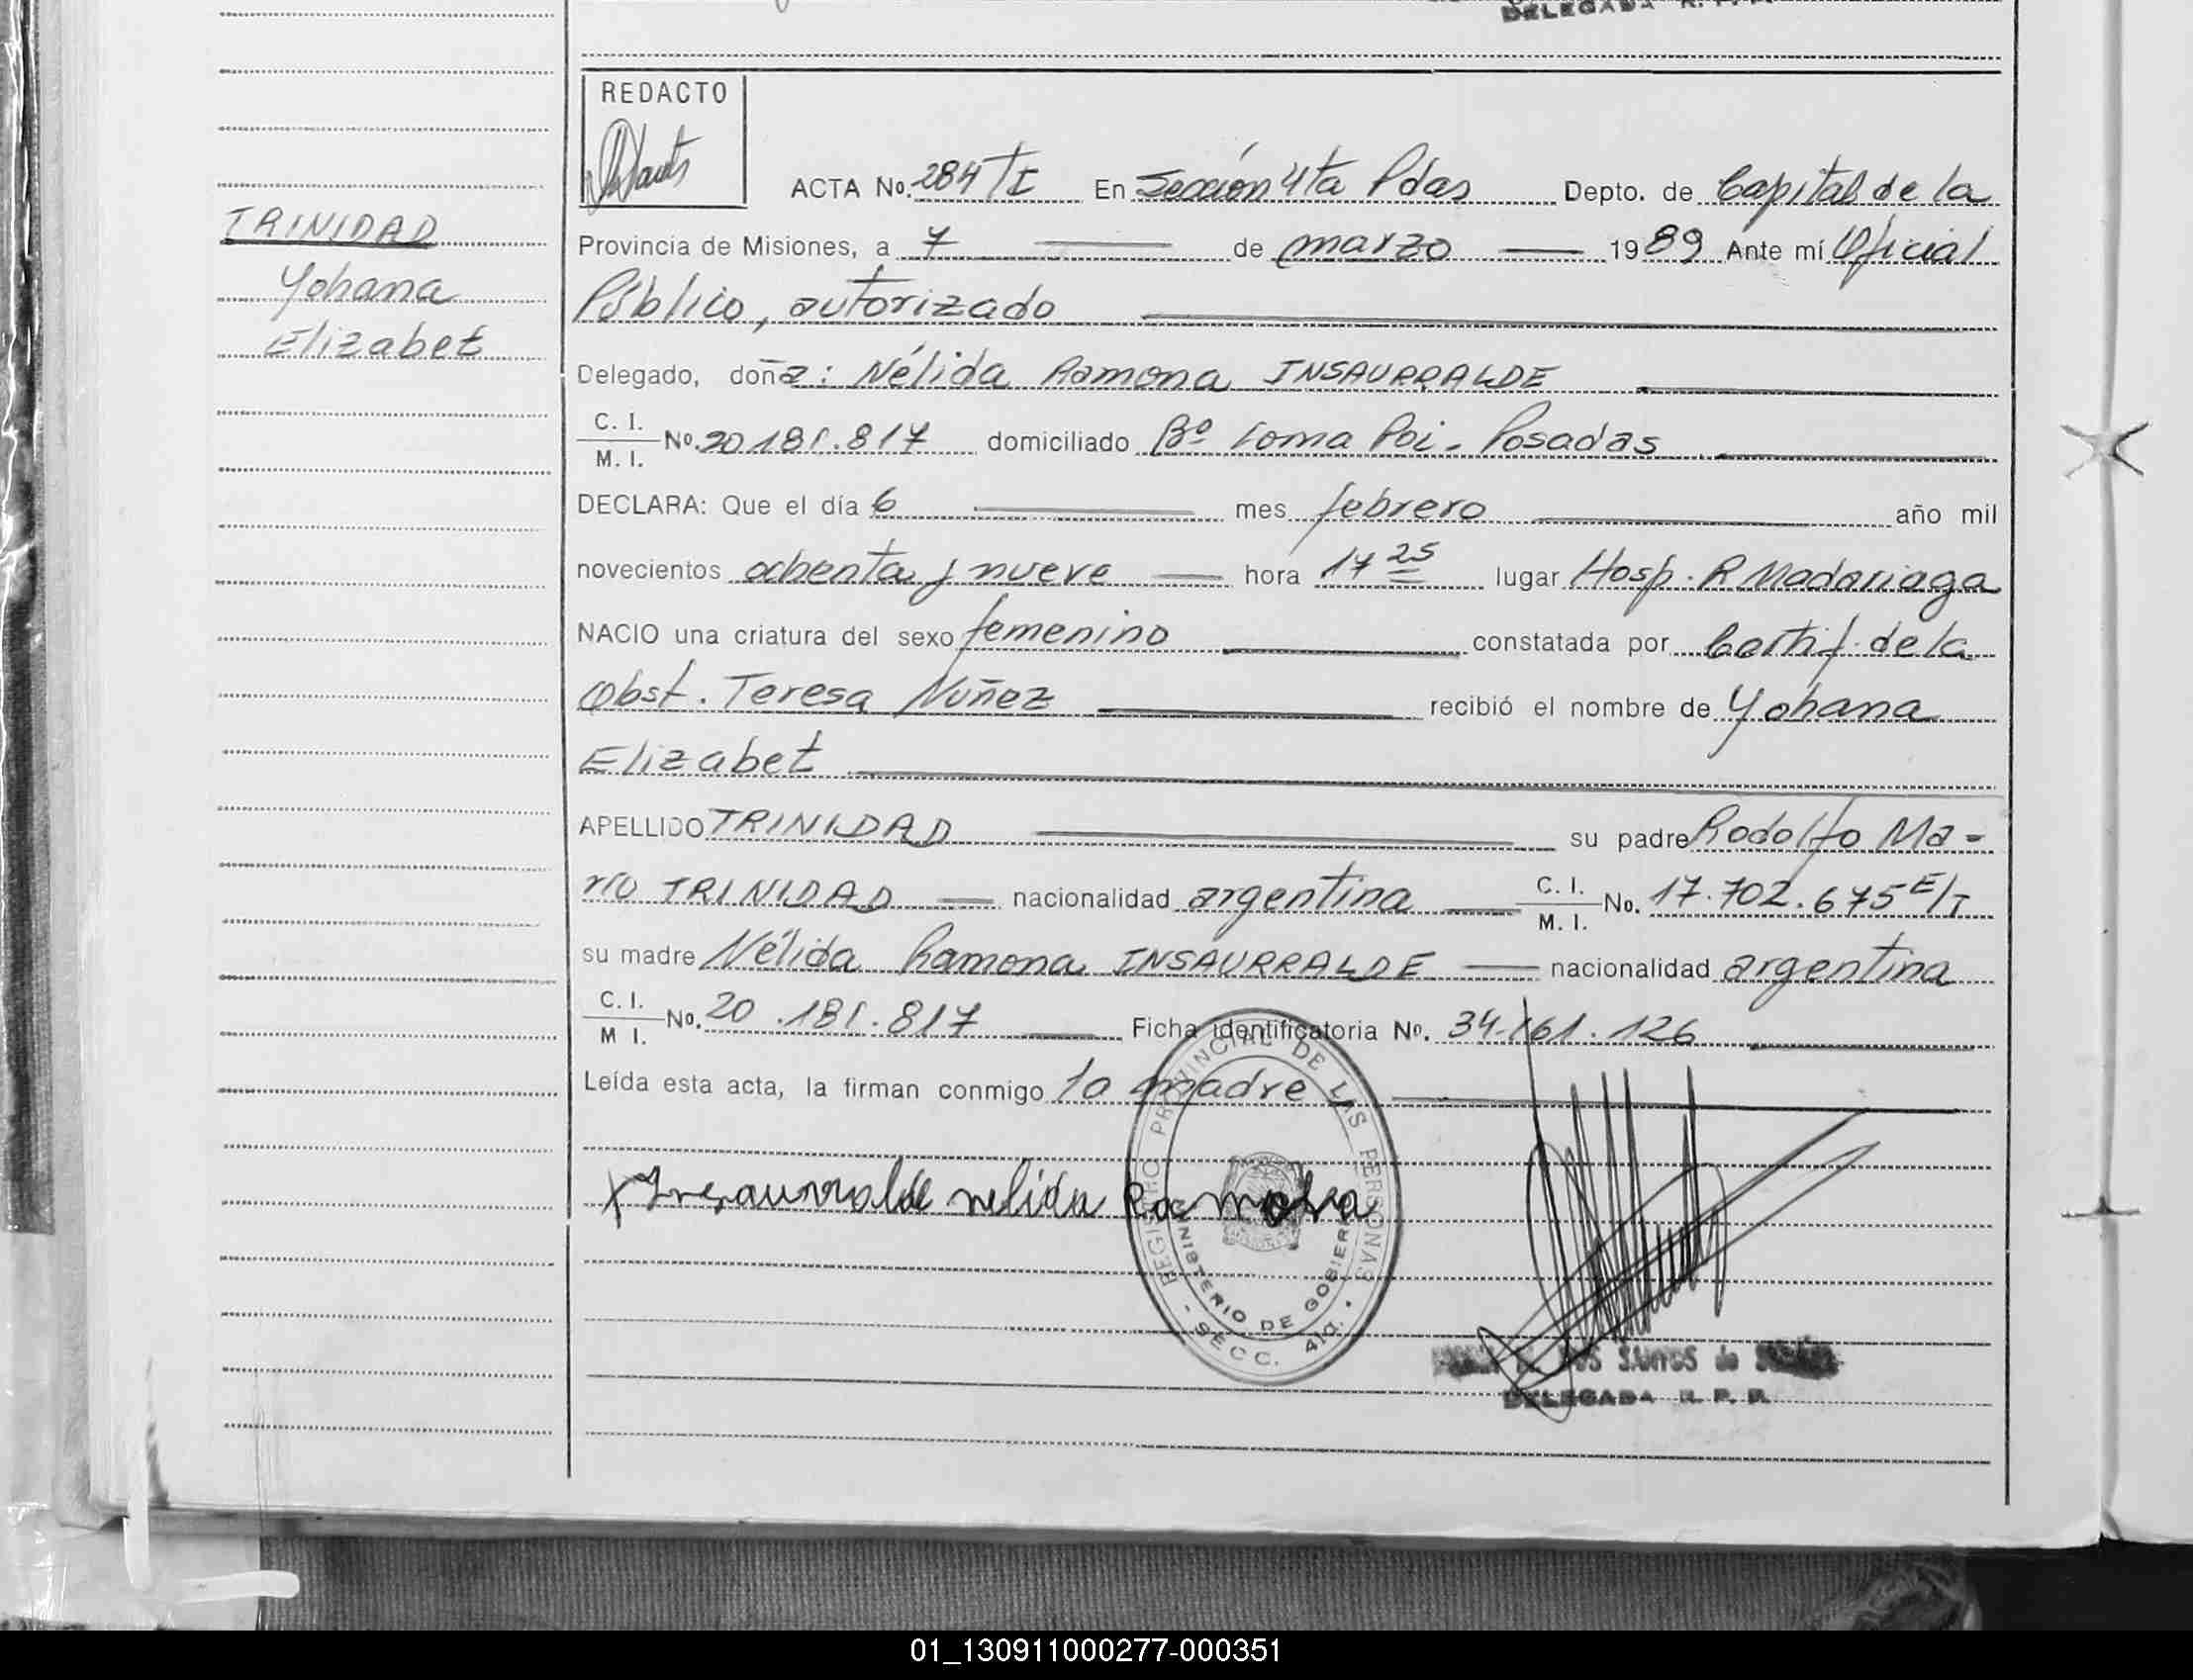 DELEGADA R. P. P.
REDACTO
ACTA No. 284 TI En Sección 4ta Pdas Depto. de Capital de la
TRINIDAD
Yohana
Elizabet
Provincia de Misiones, a 7 de marzo 1989 Ante mí Oficial
Público, autorizado
Delegado, doña: Nélida Ramona INSAURRALDE
C. I.
M. I. No. 20.181.817 domiciliado Bº Loma Poi. Posadas
DECLARA: Que el día 6 mes febrero año mil
novecientos ochenta y nueve hora 17 25 lugar Hosp. R Madariaga
NACIO una criatura del sexo femenino constatada por Certif. de la
Obst. Teresa Nuñez recibió el nombre de Yohana
Elizabet
APELLIDO TRINIDAD su padre Rodolfo Ma-
rio TRINIDAD nacionalidad argentina C. I.
M. I. No. 17.702.675 E/T
su madre Nélida Ramona INSAURRALDE nacionalidad argentina
C. I.
M I. No. 20.181.817 Ficha identificatoria No. 34.161.126
Leída esta acta, la firman conmigo la madre
x Insaurralde nelida Ramona
REGISTRO PROVINCIAL DE LAS PERSONAS
MINISTERIO DE GOBIERNO
- SECC. 4ta. -
DOS SANTOS de
DELEGADA R. P. P.
01_130911000277-000351